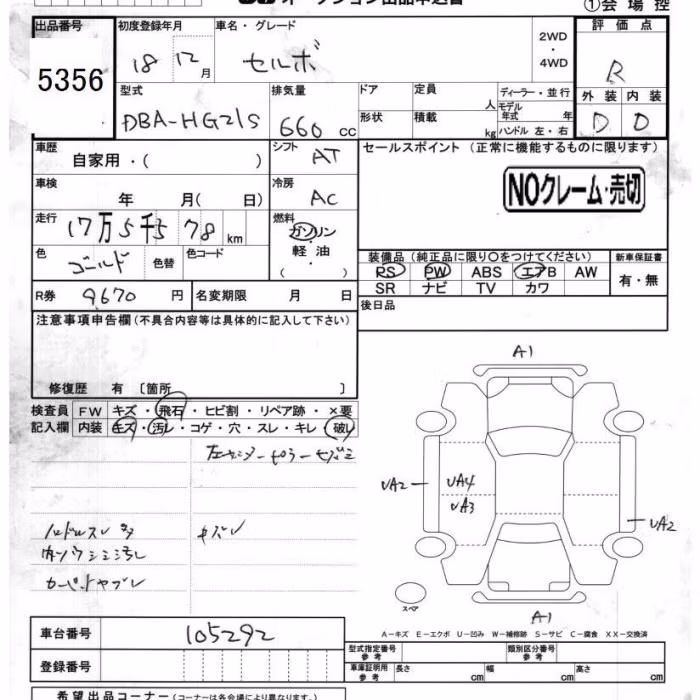 オークション出品申込書
①会場控
出品番号 初度登録年月 車名・グレード 2WD・4WD 評価点
5356 18 12月 セルボ R
型式 排気量 ドア 定員 人 ディーラー・並行 外装 内装
DBA-HG21S 660 cc 形状 積載 kg モデル年式 年 ハンドル 左・右 D D
車歴 シフト セールスポイント(正常に機能するものに限ります)
自家用・( ) AT
車検 冷房 NOクレーム・売切
年 月( 日) AC
走行 燃料
17万5千578 km ガソリン
色 色替 色コード 軽・油
ゴールド ( )
装備品(純正品に限り○をつけてください) 新車保証書
PS PW ABS エアB AW 有・無
SR ナビ TV カワ
R券 9670 円 名変期限 月 日 後日品
注意事項申告欄(不具合内容等は具体的に記入して下さい)
修復歴 有 〔箇所 〕
検査員 FW キズ・飛石・ヒビ割・リペア跡・×要
記入欄 内装 キズ・汚レ・コゲ・穴・スレ・キレ・破レ
A1
UA2
UA4
UA3
UA2
ハンドルスレ多 キズレ
カーペットヤブレ
スペア
A1
A-キズ E-エクボ U-凹み W-補修跡 S-サビ C-腐食 XX-交換済
車台番号 105292
型式指定番号 参考 類別区分番号 参考
登録番号
車庫証明用 参考 長さ cm 幅 cm 高さ cm
希望出品コーナー(コーナーは各会場により異なります。)